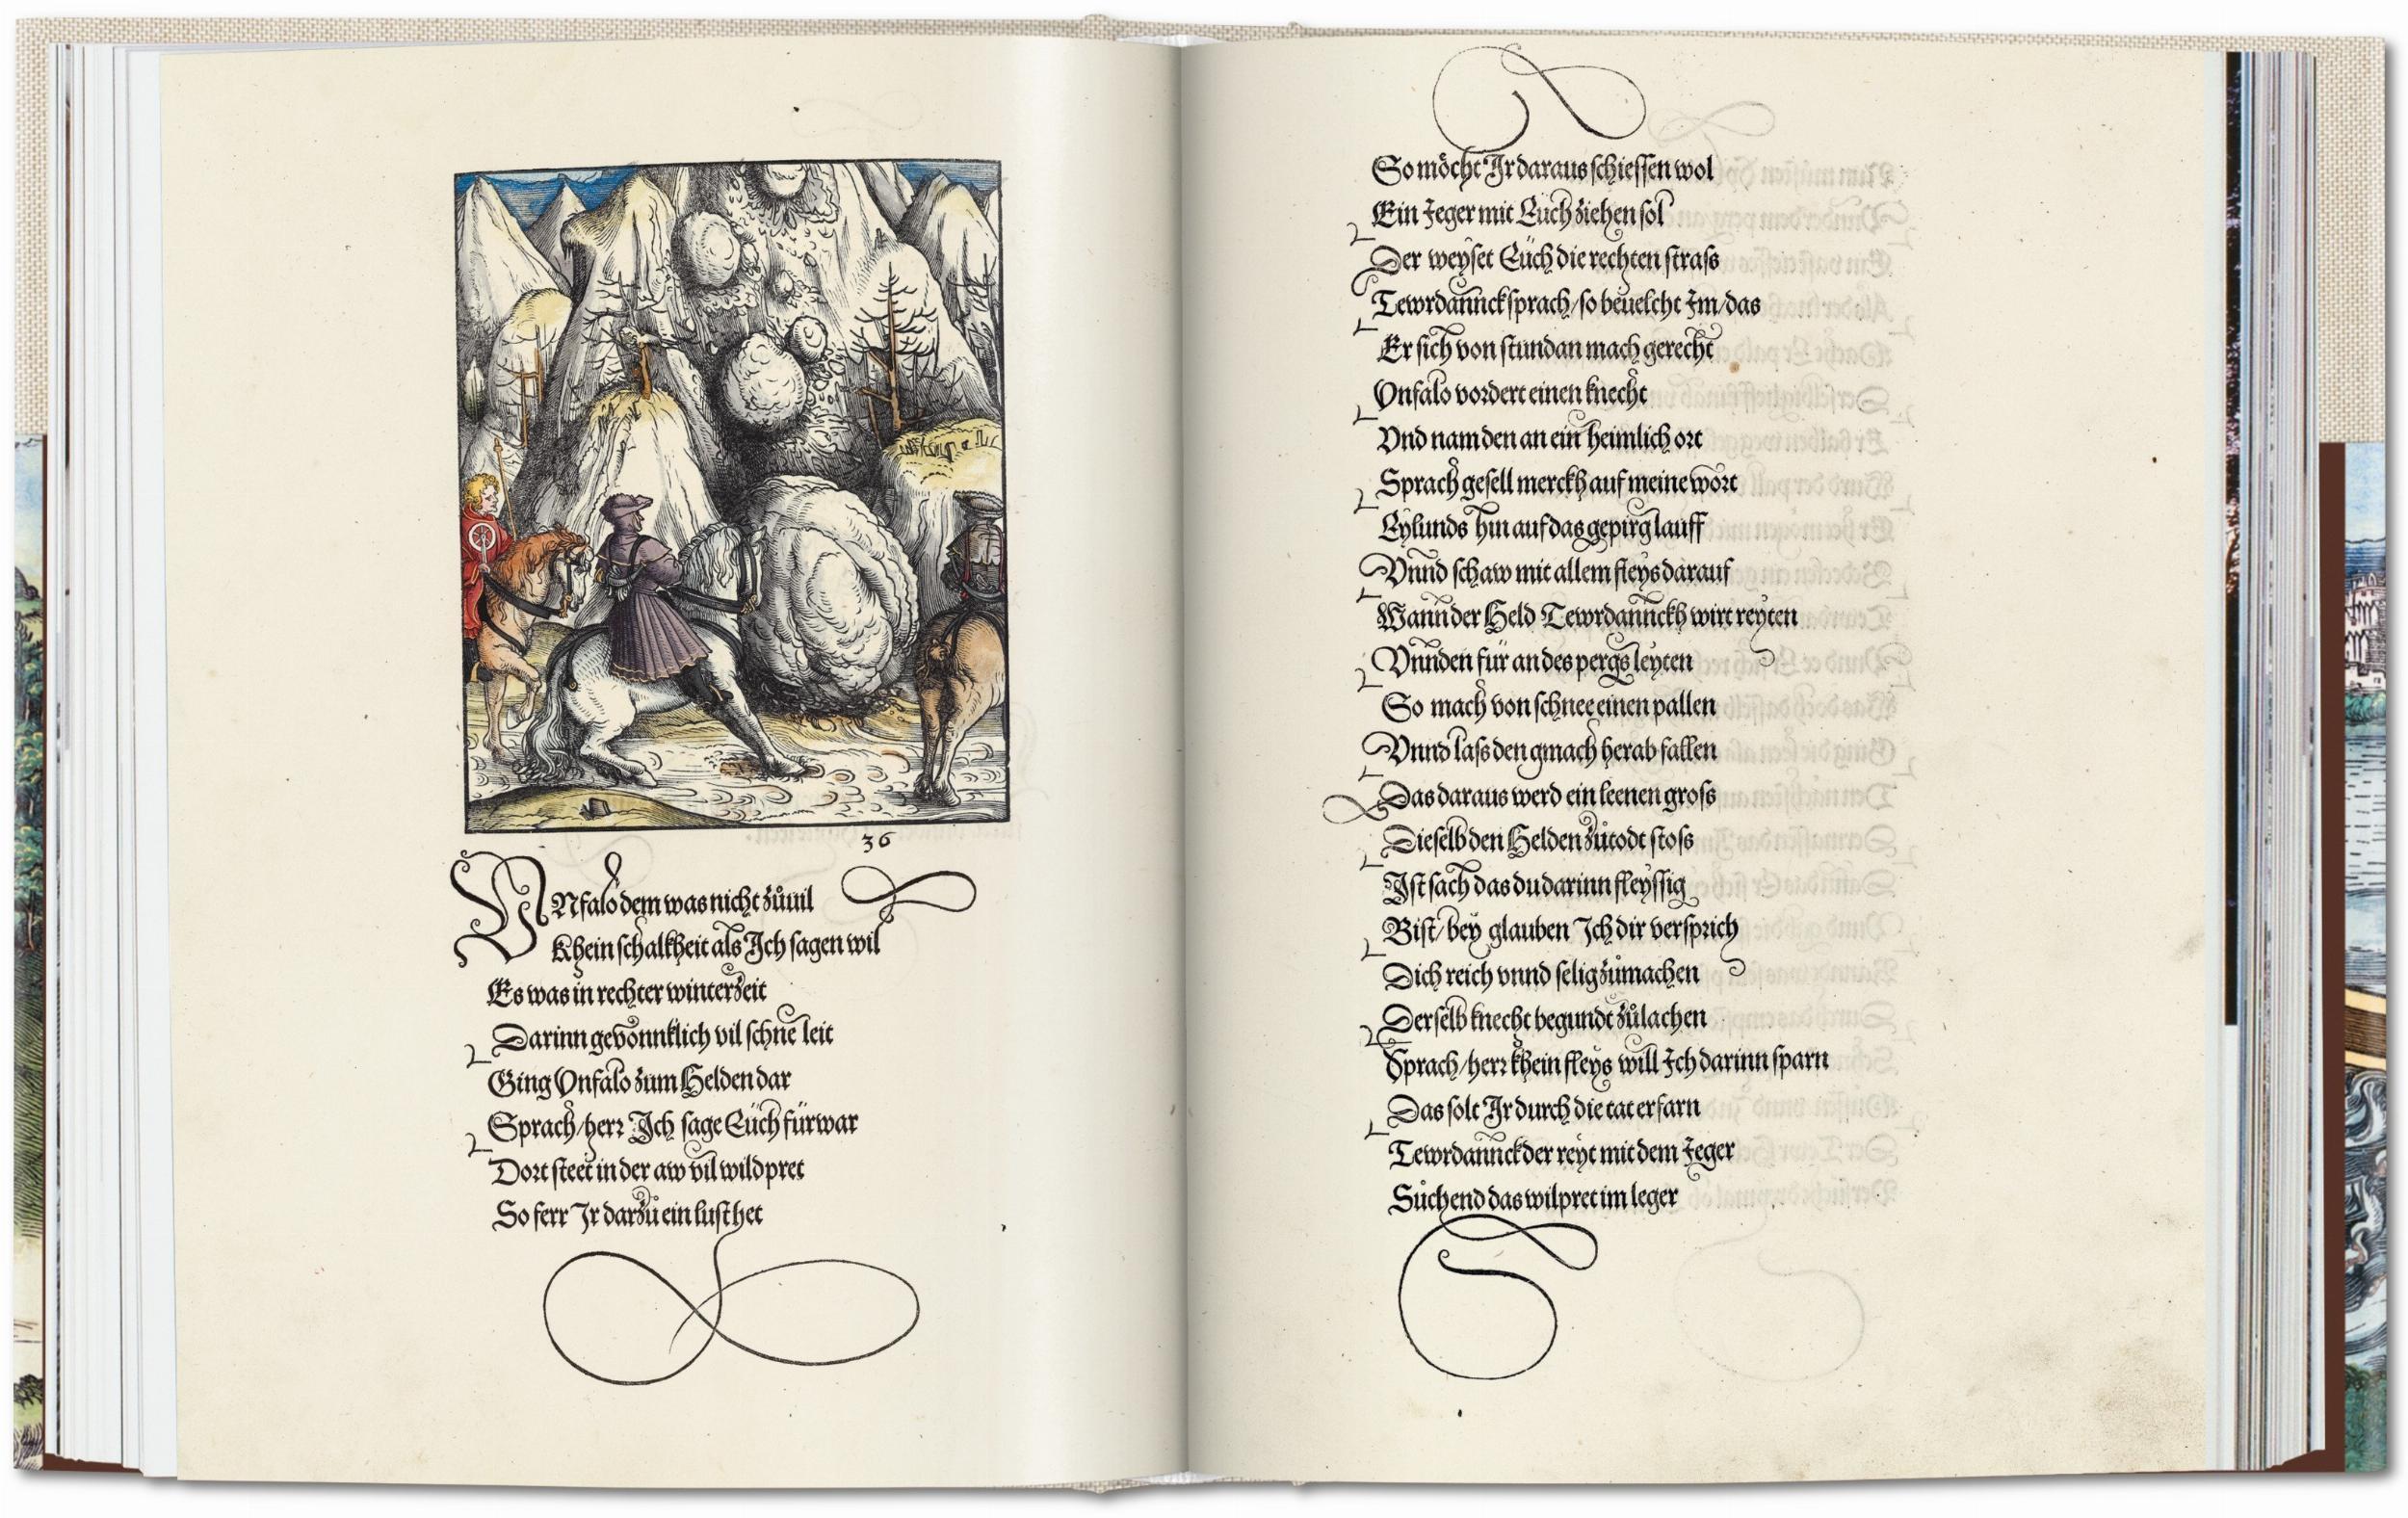 36
VNfalo dem was nicht zůuil
Khein schalkheit als Ich sagen wil
Es was in rechter winterzeit
Darinn gewonnklich vil schne leit
Ging Vnfalo zum Helden dar
Sprach/herr Ich sage Eüch fürwar
Dort steet in der aw vil wildpret
So ferr Ir darzů ein lust het
So möcht Ir daraus schiessen wol
Ein Jeger mit Eüch ziehen sol
Der weyset Eüch die rechten strass
Tewrdannck sprach/so beuelcht Im/das
Er sich von stundan mach gerecht
Vnfalo vordert einen knecht
Vnd nam den an ein heimlich ort
Sprach gesell merckh auf meine wort
Eylunds hin auf das gepirg lauff
Vnnd schaw mit allem fleys darauf
Wann der Held Tewrdannckh wirt reyten
Vnnden für an des pergs leyten
So mach von schnee einen pallen
Vnnd lass den gmach herab fallen
Das daraus werd ein leenen gross
Dieselb den Helden zůtodt stoss
Ist sach das du darinn fleyssig
Bist/bey glauben Ich dir versprich
Dich reich vnnd selig zůmachen
Derselb knecht begundt zůlachen
Sprach/herr khein fleys will Ich darinn sparn
Das solt Ir durch die tat erfarn
Tewrdannck der reyt mit dem Jeger
Sůchend das wilpret im leger